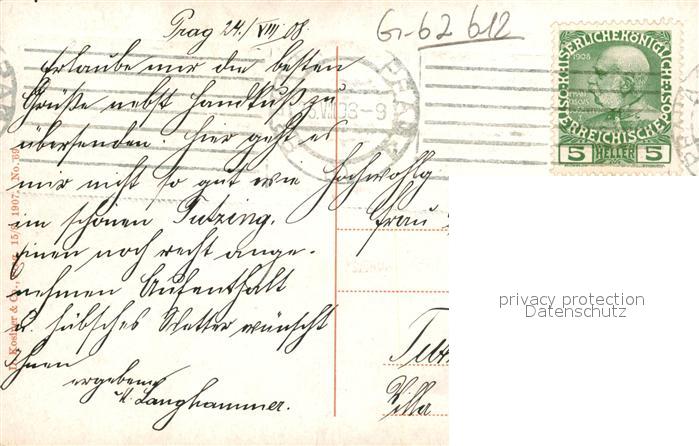 Prag 24./VIII 08.
G-62 612
Erlaube mir die besten
Grüße nebst Handkuß zu
übersenden. Hier geht es
mir nicht so gut wie
im schönen Tutzing.
Einen noch recht ange-
nehmen Aufenthalt
u. hübsches Wetter wünscht
Ihnen
ergebenst
Langhammer.
Hochwohlg
Frau
Villa
KAISERLICHE KÖNIGLICHE
1908
ÖSTERREICHISCHE POST
5 HELLER 5
15/ 1907. No.
privacy protection
Datenschutz